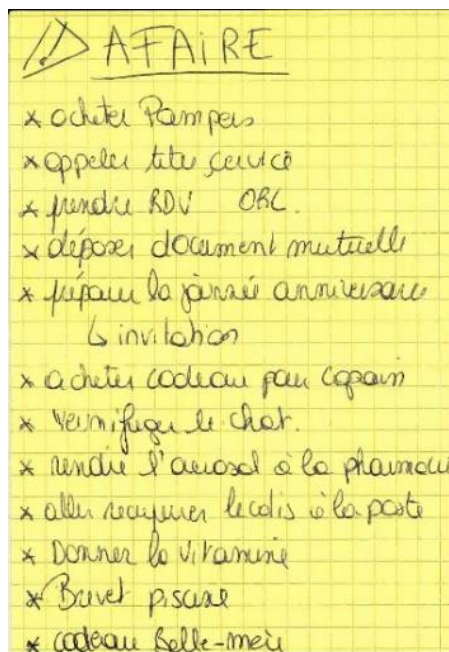 ⚠ A FAIRE
* acheter Pampers
* appeler titre service
* prendre RDV ORL.
* déposer document mutuelle
* préparer la journée anniversaire
↳ invitation
* acheter cadeau pour copain
* Vermifuger le chat.
* rendre l'aerosol à la pharmacie
* aller récupérer le colis à la poste
* Donner la vitamine
* Brevet piscine
* cadeau Belle-mère